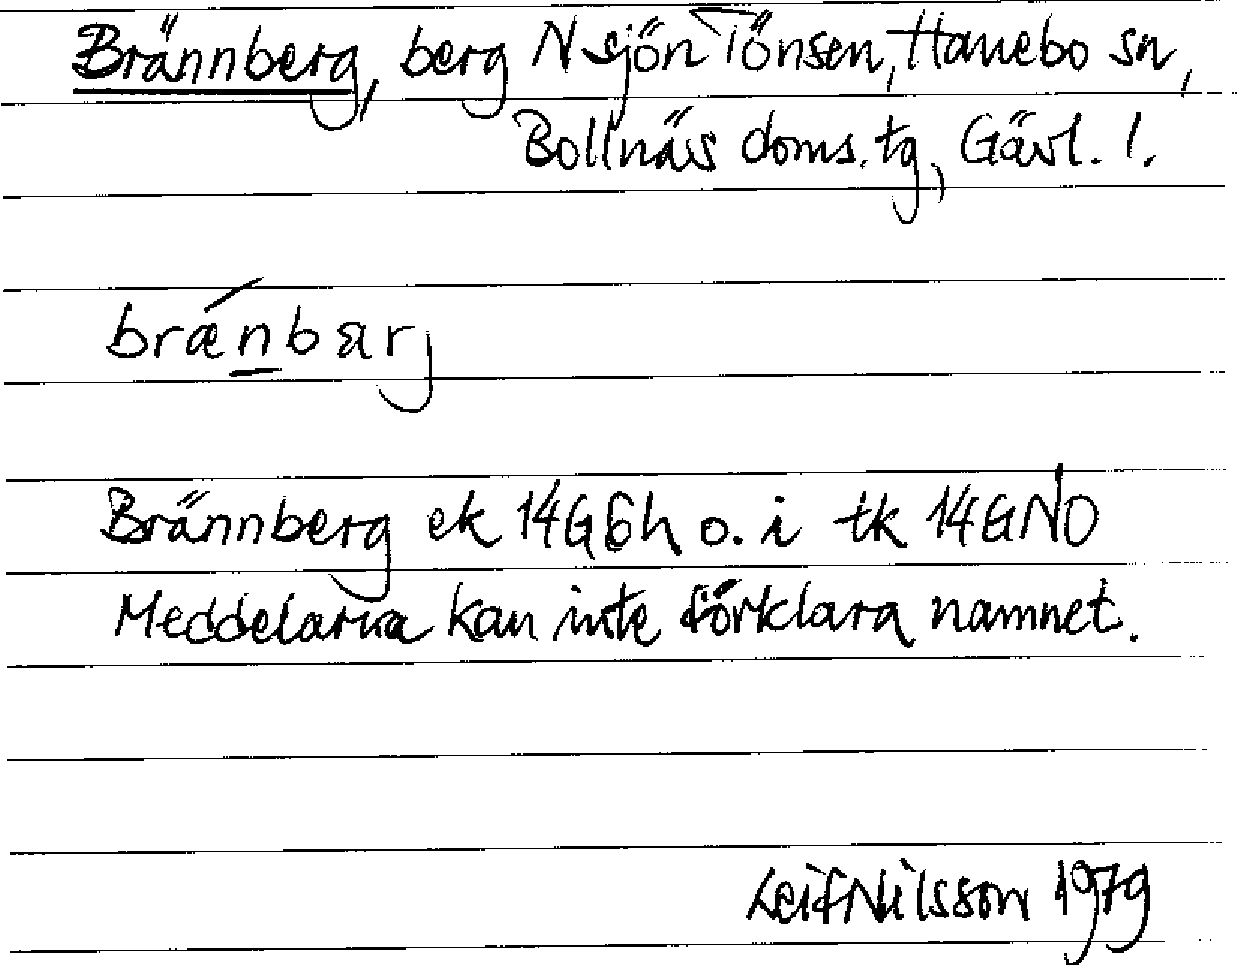 Brännberg, berg N sjön Tönsen, Hanebo sn,
Bollnäs doms. tg, Gävl. l.
brǽn̲bærj
Brännberg ek 14G6h o. i tk 14GNO
Meddelarna kan inte förklara namnet.
Leif Nilsson 1979